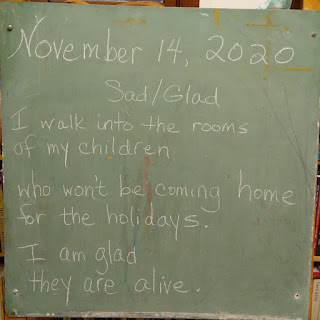 November 14, 2020
Sad/Glad
I walk into the rooms
of my children
who won't be coming home
for the holidays.
I am glad
they are alive.